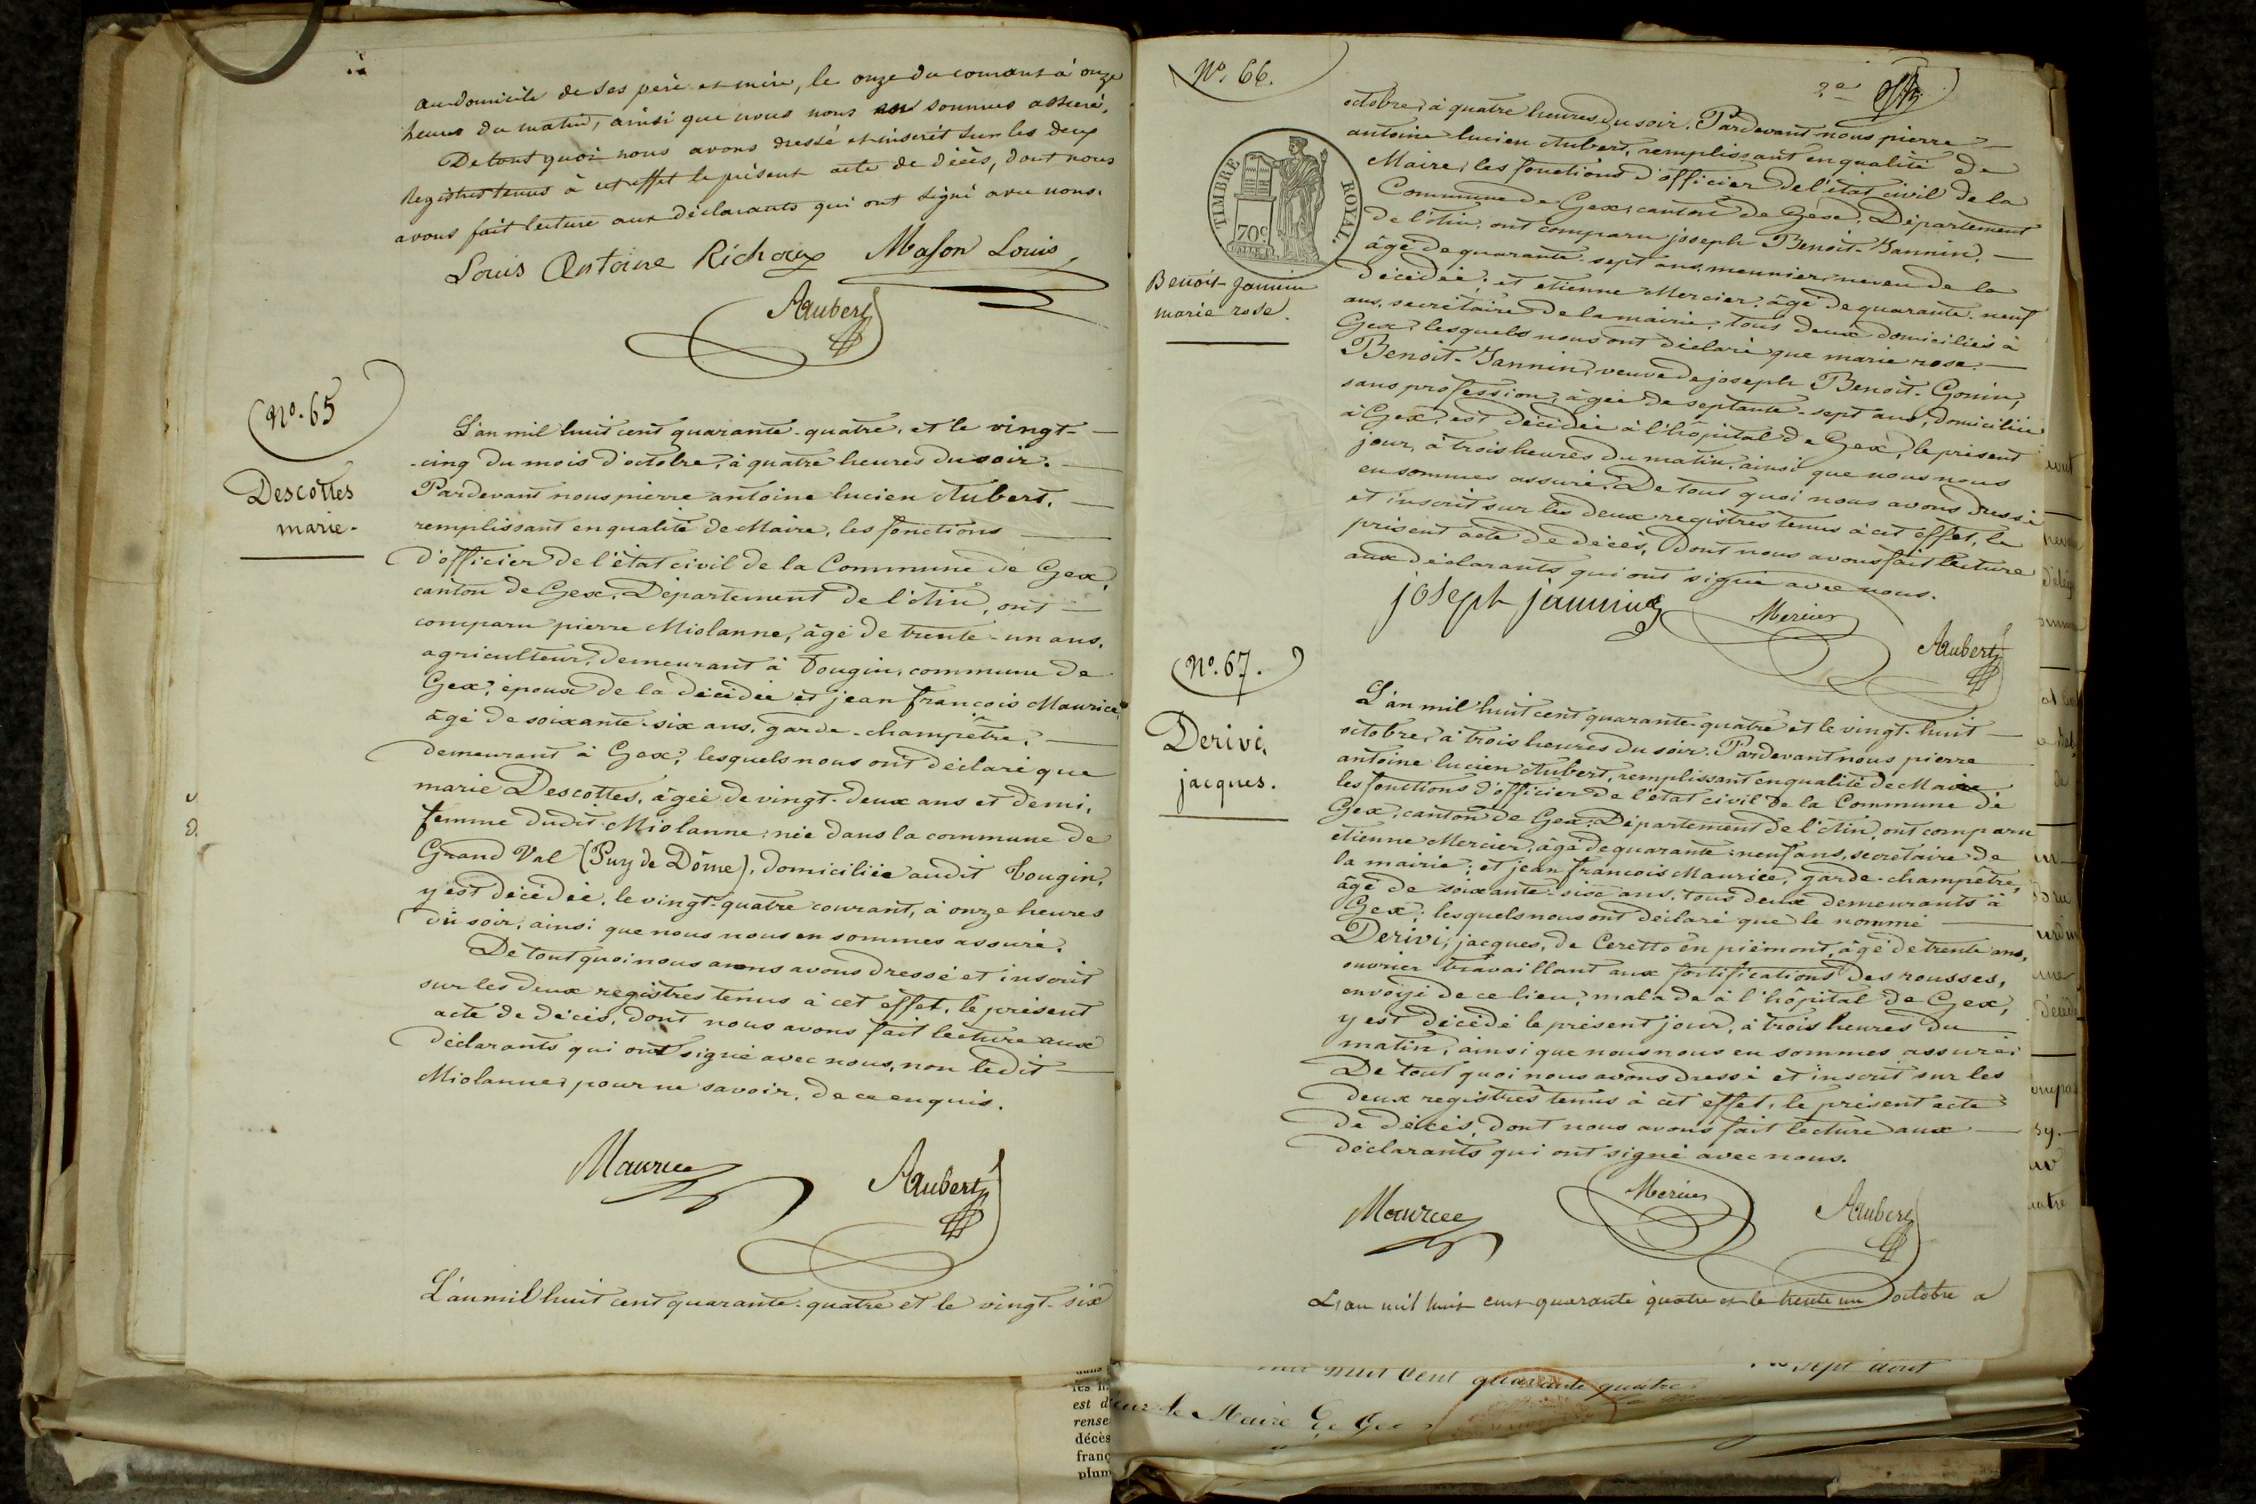 au domicile de ses père et mère, le onze du courant à onze
heures du matin, ainsi que nous nous en sommes assuré.
De tout quoi nous avons dressé et inscrit sur les deux
Registres tenus à cet effet le présent acte de décès, dont nous
avons fait lecture aux déclarants qui ont signé avec nous.
Louis Antoine Richoux Mason Louis
AAubert
No. 65
Descottes
marie.
L'an mil huit cent quarante-quatre, et le vingt-
-cinq du mois d'octobre, à quatre heures du soir.
Pardevant nous pierre antoine lucien Aubert,
remplissant en qualité de Maire, les fonctions
d'officier de l'état civil de la Commune de Gex,
canton de Gex, Département de l'Ain, ont
comparu pierre Miolanne, âgé de trente-un ans,
agriculteur, demeurant à Tougin, commune de
Gex, époux de la décédée et jean francois Maurice,
âgé de soixante-six ans, garde-champêtre,
demeurant à Gex, lesquels nous ont déclaré que
marie Descottes, âgée de vingt-deux ans et demi,
femme dudit Miolanne, née dans la commune de
Grand Val (Puy de Dôme), domiciliée audit Tougin,
y est décédée, le vingt-quatre courant, à onze heures
du soir, ainsi que nous nous en sommes assuré.
De tout quoi nous avons avons dressé et inscrit
sur les deux registres tenus à cet effet, le présent
acte de décès, dont nous avons fait lecture aux
déclarants qui ont signé avec nous, non ledit
Miolanne, pour ne savoir, de ce enquis.
Maurice AAubert
L'an mil huit cent quarante-quatre et le vingt-six
No. 66.
TIMBRE ROYAL.
70c
Benoit-Jannin
marie rose.
octobre, à quatre heures du soir. Pardevant nous pierre
antoine lucien Aubert, remplissant en qualité de
Maire, les fonctions d'officier de l'état civil de la
Commune de Gex, canton de Gex, Département
de l'Ain, ont comparu joseph Benoit-Jannin,
âgé de quarante-sept ans, meunier, neveu de la
décédée; et etienne Mercier, âgé de quarante-neuf
ans, secrétaire de la mairie, tous deux domiciliés à
Gex, lesquels nous ont déclaré que marie rose
Benoit-Jannin, veuve de joseph Benoit-Gonin,
sans profession, âgée de septante-sept ans, domiciliée
à Gex, est décédée à l'hôpital de Gex, le présent
jour, à trois heures du matin, ainsi que nous nous
en sommes assuré. De tout quoi nous avons dressé
et inscrit sur les deux registres tenus à cet effet, le
présent acte de décès, dont nous avons fait lecture
aux déclarants qui ont signé avec nous.
joseph jannin Mercier AAubert
No. 67.
Derivi,
jacques.
L'an mil huit cent quarante-quatre et le vingt-huit
octobre, à trois heures du soir. Pardevant nous pierre
antoine lucien Aubert, remplissant en qualité de Maire
les fonctions d'officier de l'état civil de la Commune de
Gex, canton de Gex, Département de l'Ain, ont comparu
etienne Mercier, âgé de quarante-neuf ans, secrétaire de
la mairie; et jean francois Maurice, garde-champêtre,
âgé de soixante-six ans, tous deux demeurants à
Gex; lesquels nous ont déclaré que le nommé
Derivi, jacques, de Ceretto en piémont, âgé de trente ans,
ouvrier travaillant aux fortifications des rousses,
envoyé de ce lieu, malade à l'hôpital de Gex,
y est décédé le présent jour, à trois heures du
matin, ainsi que nous nous en sommes assuré.
De tout quoi nous avons dressé et inscrit sur les
deux registres tenus à cet effet, le présent acte
de décès, dont nous avons fait lecture aux
déclarants qui ont signé avec nous.
Maurice Mercier AAubert
L'an mil huit cent quarante quatre et le trente un octobre a
huit Cent quarante quatre sept aout
le Maire De Gex
est d
rense
décès
franç
plum